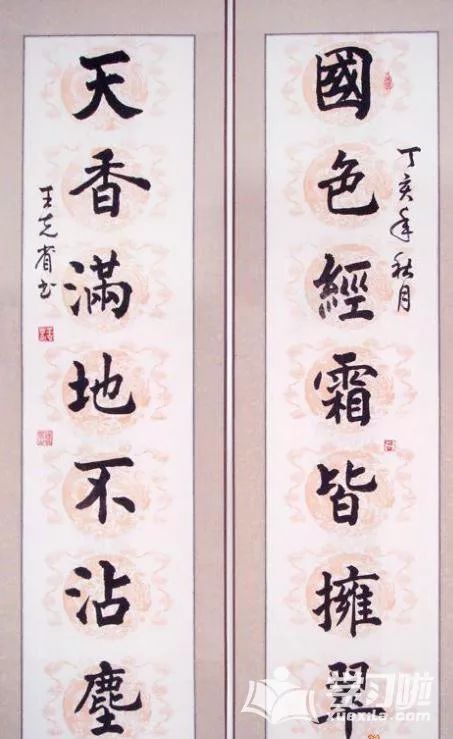 國色經霜皆擁翠
丁亥年秋月
天香滿地不沾塵
王克省书
学习啦
xuexila.com